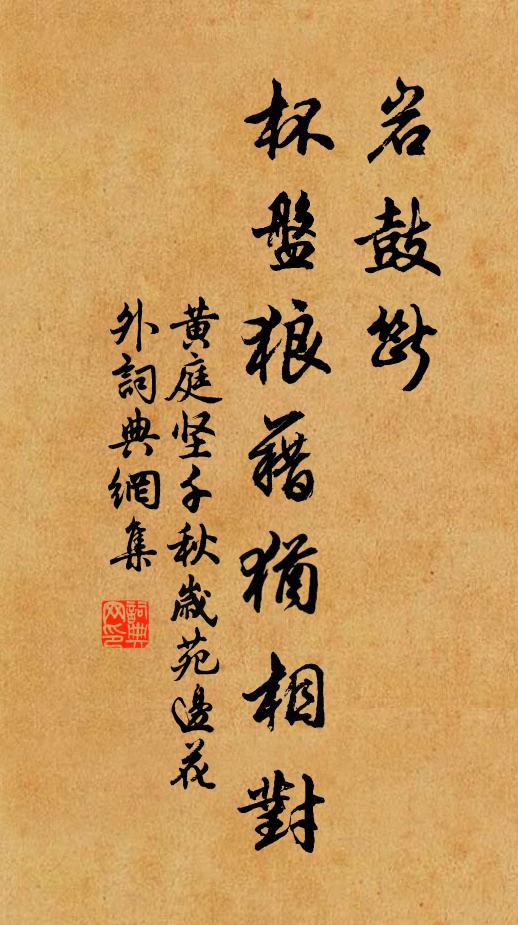 岩鼓斷
杯盤狼藉猶相對
黄庭坚千秋歲苑邊花
外詞典網集
詞典
网印